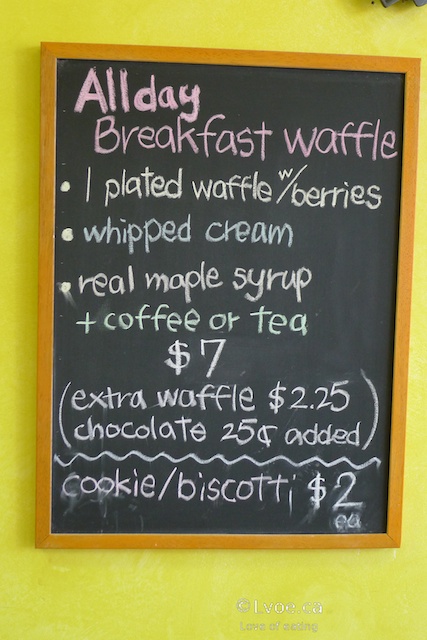 Allday
Breakfast waffle
• 1 plated waffle w/berries
• whipped cream
• real maple syrup
+ coffee or tea
$7
(extra waffle $2.25
chocolate 25¢ added)
cookie/biscotti $2
ea
©Lvoe.ca
Love of eating